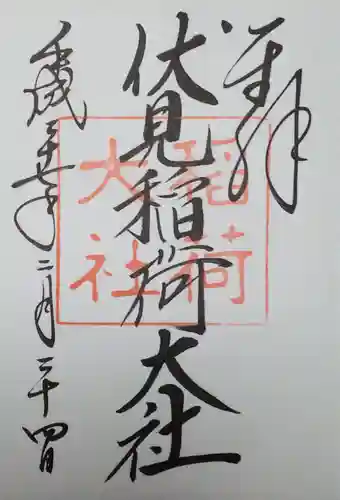 奉拝
伏見稲荷大社
平成二十七年二月二十四日
稲荷
大社